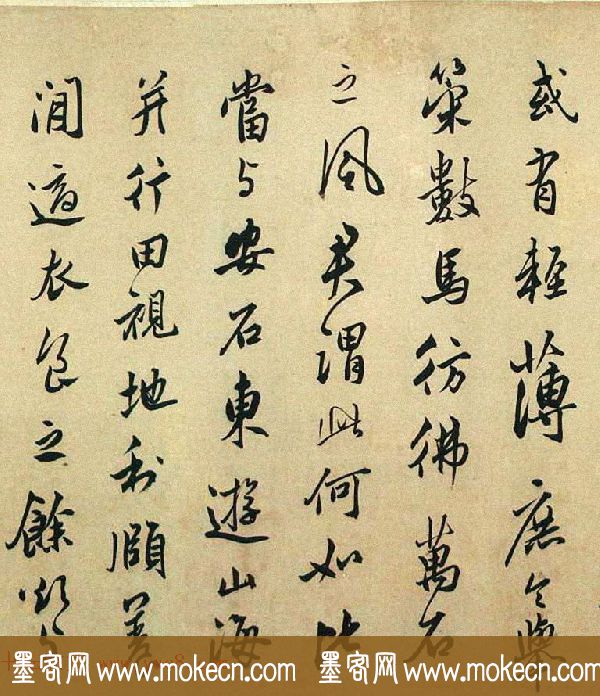 或有輕薄庶令舉
策數馬彷彿萬石
之風君謂此何如比
當与安石東遊山海
并行田視地利頤養
閒適衣食之餘欲
墨客网 www.mokecn.com 墨客网 www.mokecn.com